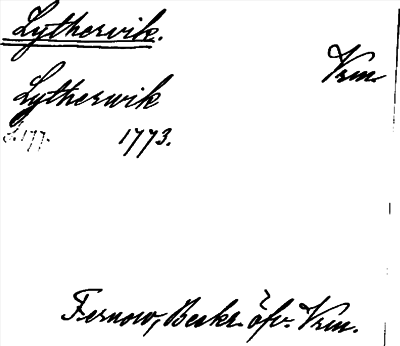 Lythersvik.
Vrm.
Lytherwik
s. 177. 1773.
Fernow, Beskr. öfv. Vrm.